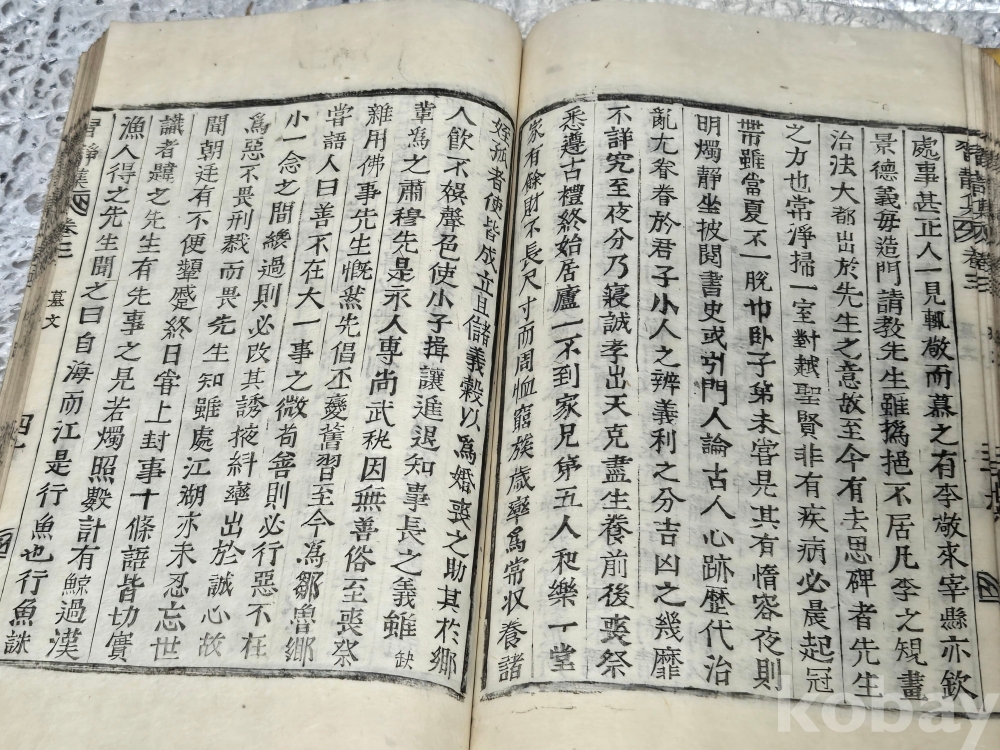 處事甚正人一見輒敬而慕之有李敬來宰縣亦欽
景德義毋造門請教先生雖撝挹不居凡李之規畫
治法大都出於先生之意故至今有去思碑者先生
之力也常淨掃一室對越聖賢非有疾病必晨起冠
帶雖當夏不一脫巾卧子第未嘗見其有惰容夜則
明燭静坐披閱書史或引門人論古人心跡歷代治
亂尤眷眷於君子小人之辨義利之分吉凶之幾靡
不詳究至夜分乃寢誠孝出天克盡生養前後喪祭
悉遵古禮終始居廬一不到家兄第五人和樂一堂
家有餘財不長尺寸而周恤窮族歲率爲常収養諸
姪孤者使皆成立且儲義穀以爲婚喪之助其於鄉
人飮不娛聲色使小子揖讓進退知事長之義雖 缺
軰爲之肅穆先是永人專尚武秩因無善俗至喪祭
雜用佛事先生慨然先倡丕變舊習至今爲鄒魯鄉
嘗語人曰善不在大一事之微苟善則必行惡不在
小一念之間纔過則必改其誘掖糾率出於誠心故
爲惡不畏刑戮而畏先生知雖處江湖亦未忍忘世
聞朝廷有不便顰蹙終日嘗上封事十條語皆切實
識者韙之先生有先事之見若燭照數計有鯨過漢
漁人得之先生聞之曰自海而江是行魚也行魚誅
集 卷三 墓文 四